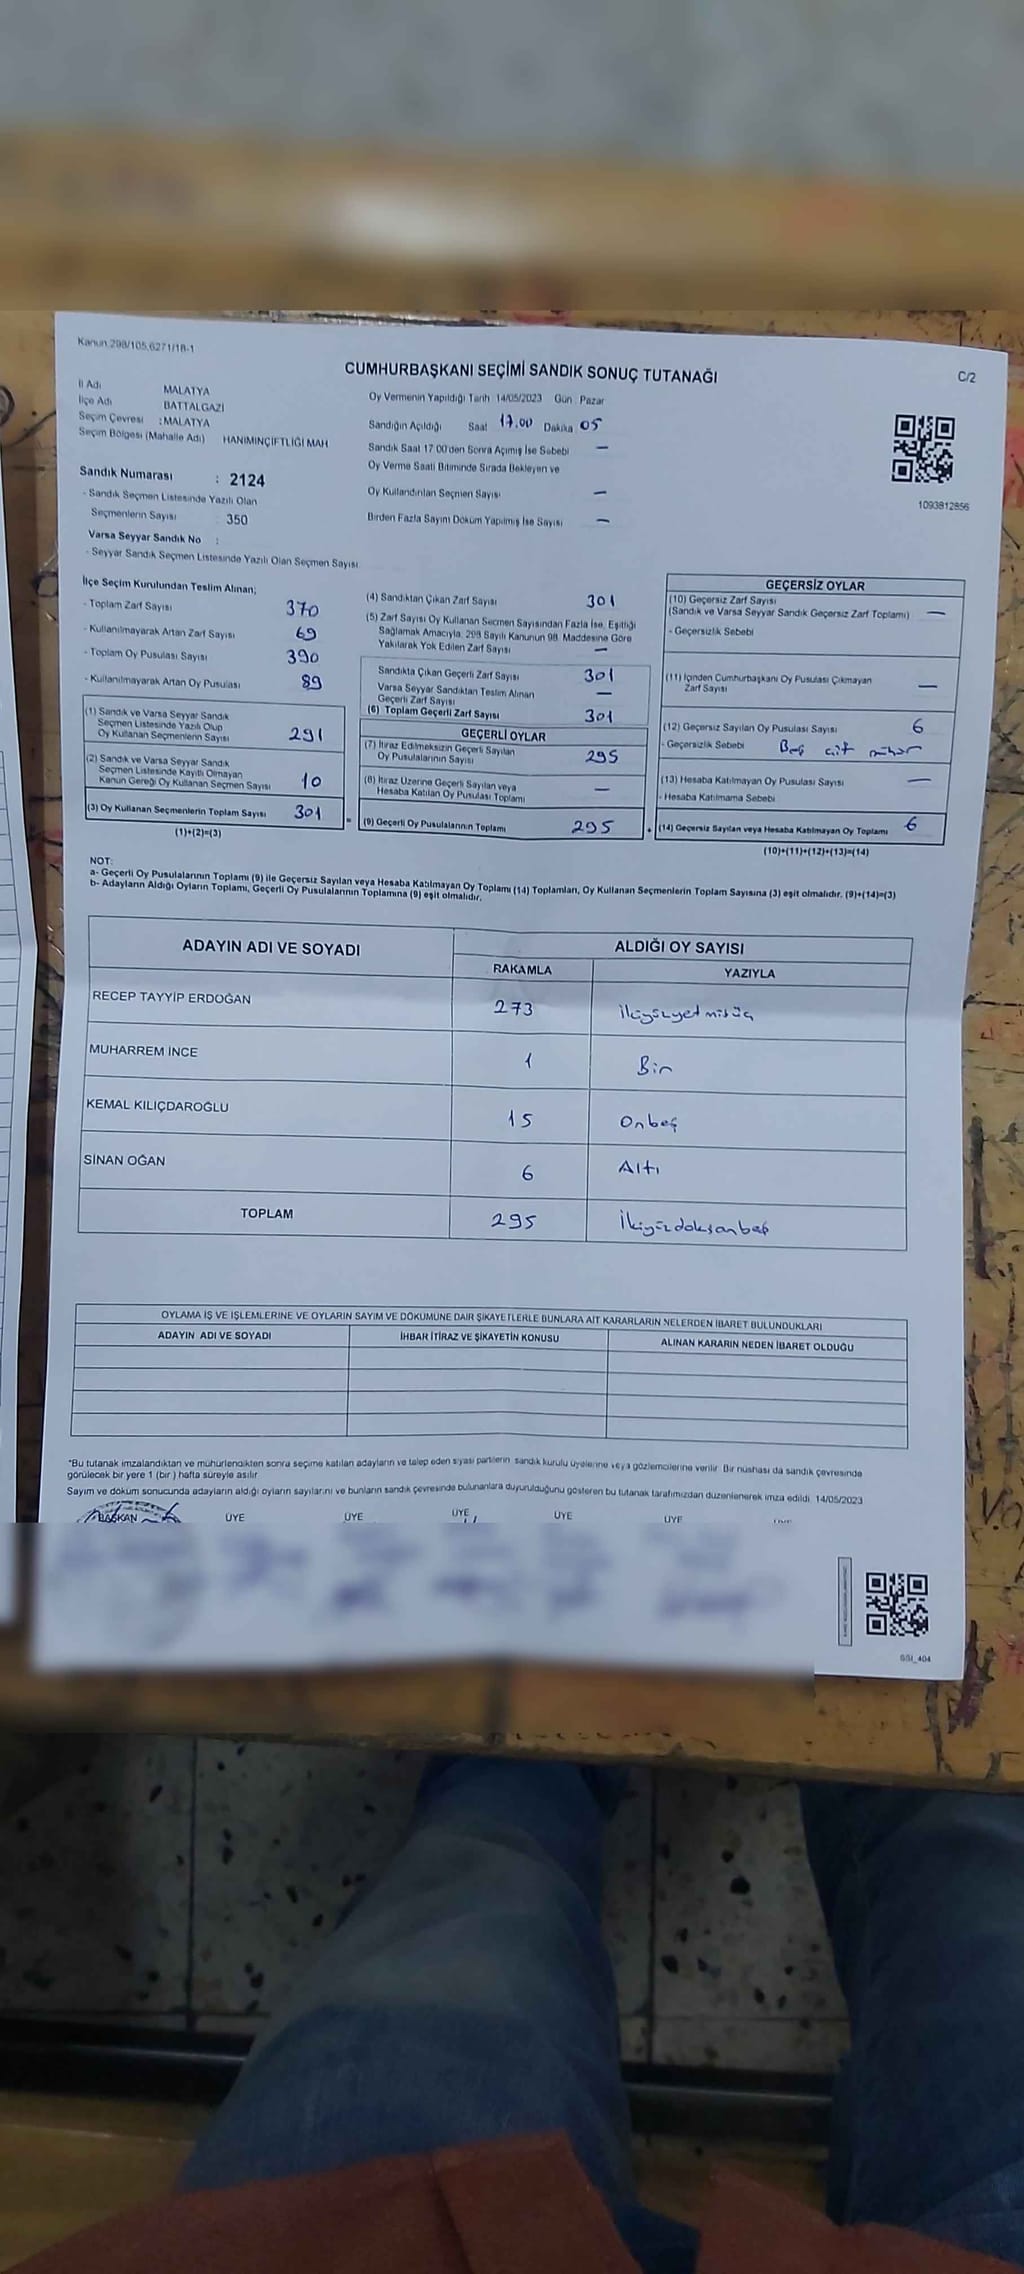 Kanun 298/105,6271/18-1
CUMHURBAŞKANI SEÇİMİ SANDIK SONUÇ TUTANAĞI
C/2
İl Adı MALATYA
İlçe Adı BATTALGAZİ
Seçim Çevresi : MALATYA
Seçim Bölgesi (Mahalle Adı) HANIMINÇİFTLİĞİ MAH
Sandık Numarası : 2124
- Sandık Seçmen Listesinde Yazılı Olan
Seçmenlerin Sayısı 350
Varsa Seyyar Sandık No :
- Seyyar Sandık Seçmen Listesinde Yazılı Olan Seçmen Sayısı
Oy Vermenin Yapıldığı Tarih 14/05/2023 Gün Pazar
Sandığın Açıldığı Saat 17.00 Dakika 05
Sandık Saat 17.00'den Sonra Açımış İse Sebebi —
Oy Verme Saati Bitiminde Sırada Bekleyen ve
Oy Kullandırılan Seçmen Sayısı —
Birden Fazla Sayım Döküm Yapılmış İse Sayısı —
1093812856
İlçe Seçim Kurulundan Teslim Alınan;
- Toplam Zarf Sayısı 370
- Kullanılmayarak Artan Zarf Sayısı 69
- Toplam Oy Pusulası Sayısı 390
- Kullanılmayarak Artan Oy Pusulası 89
(1) Sandık ve Varsa Seyyar Sandık
Seçmen Listesinde Yazılı Olup
Oy Kullanan Seçmenlerin Sayısı 291
(2) Sandık ve Varsa Seyyar Sandık
Seçmen Listesinde Kayıtlı Olmayan
Kanun Gereği Oy Kullanan Seçmen Sayısı 10
(3) Oy Kullanan Seçmenlerin Toplam Sayısı 301
(1)+(2)=(3)
(4) Sandıktan Çıkan Zarf Sayısı 301
(5) Zarf Sayısı Oy Kullanan Seçmen Sayısından Fazla İse, Eşitliği
Sağlamak Amacıyla, 298 Sayılı Kanunun 98. Maddesine Göre
Yakılarak Yok Edilen Zarf Sayısı —
Sandıkta Çıkan Geçerli Zarf Sayısı 301
Varsa Seyyar Sandıktan Teslim Alınan
Geçerli Zarf Sayısı —
(6) Toplam Geçerli Zarf Sayısı 301
GEÇERLİ OYLAR
(7) İtiraz Edilmeksizin Geçerli Sayılan
Oy Pusulalarının Sayısı 295
(8) İtiraz Üzerine Geçerli Sayılan veya
Hesaba Katılan Oy Pusulası Toplamı —
= (9) Geçerli Oy Pusulalarının Toplamı 295 +
GEÇERSİZ OYLAR
(10) Geçersiz Zarf Sayısı
(Sandık ve Varsa Seyyar Sandık Geçersiz Zarf Toplamı) —
- Geçersizlik Sebebi
(11) İçinden Cumhurbaşkanı Oy Pusulası Çıkmayan
Zarf Sayısı —
(12) Geçersiz Sayılan Oy Pusulası Sayısı 6
- Geçersizlik Sebebi
(13) Hesaba Katılmayan Oy Pusulası Sayısı —
- Hesaba Katılmama Sebebi
(14) Geçersiz Sayılan veya Hesaba Katılmayan Oy Toplamı 6
(10)+(11)+(12)+(13)=(14)
NOT:
a- Geçerli Oy Pusulalarının Toplamı (9) ile Geçersiz Sayılan veya Hesaba Katılmayan Oy Toplamı (14) Toplamları, Oy Kullanan Seçmenlerin Toplam Sayısına (3) eşit olmalıdır. (9)+(14)=(3)
b- Adayların Aldığı Oyların Toplamı, Geçerli Oy Pusulalarının Toplamına (9) eşit olmalıdır.
ADAYIN ADI VE SOYADI ALDIĞI OY SAYISI
RAKAMLA YAZIYLA
RECEP TAYYİP ERDOĞAN 273 İkiyüzyetmişüç
MUHARREM İNCE 1 Bir
KEMAL KILIÇDAROĞLU 15 Onbeş
SİNAN OĞAN 6 Altı
TOPLAM 295 İkiyüzdoksanbeş
OYLAMA İŞ VE İŞLEMLERİNE VE OYLARIN SAYIM VE DÖKÜMÜNE DAİR ŞİKAYETLERLE BUNLARA AİT KARARLARIN NELERDEN İBARET BULUNDUKLARI
ADAYIN ADI VE SOYADI İHBAR İTİRAZ VE ŞİKAYETİN KONUSU ALINAN KARARIN NEDEN İBARET OLDUĞU
*Bu tutanak imzalandıktan ve mühürlendikten sonra seçime katılan adayların ve talep eden siyasi partilerin sandık kurulu üyelerine veya gözlemcilerine verilir. Bir nüshası da sandık çevresinde
görülecek bir yere 1 (bir) hafta süreyle asılır
Sayım ve döküm sonucunda adayların aldığı oyların sayılarını ve bunların sandık çevresinde bulunanlara duyurulduğunu gösteren bu tutanak tarafımızdan düzenlenerek imza edildi. 14/05/2023
BAŞKAN ÜYE ÜYE ÜYE ÜYE ÜYE